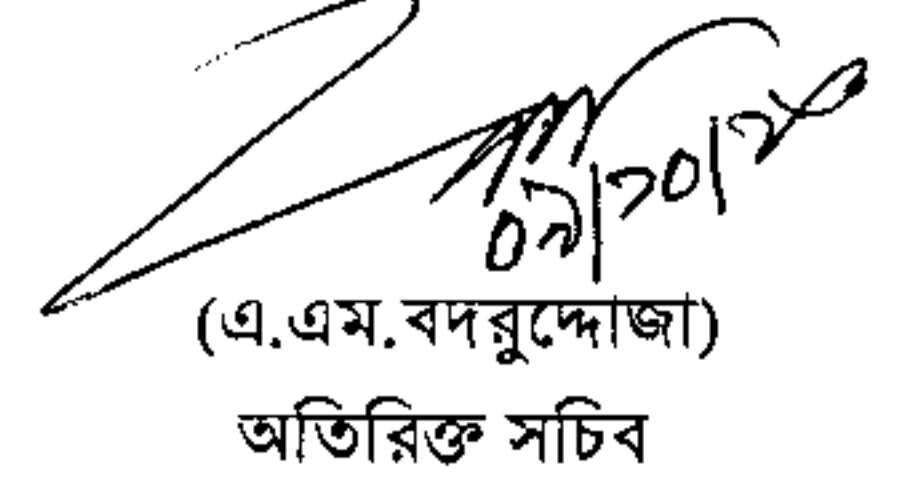 ০৯/১০/১৪
(এ.এম.বদরুদ্দোজা)
অতিরিক্ত সচিব